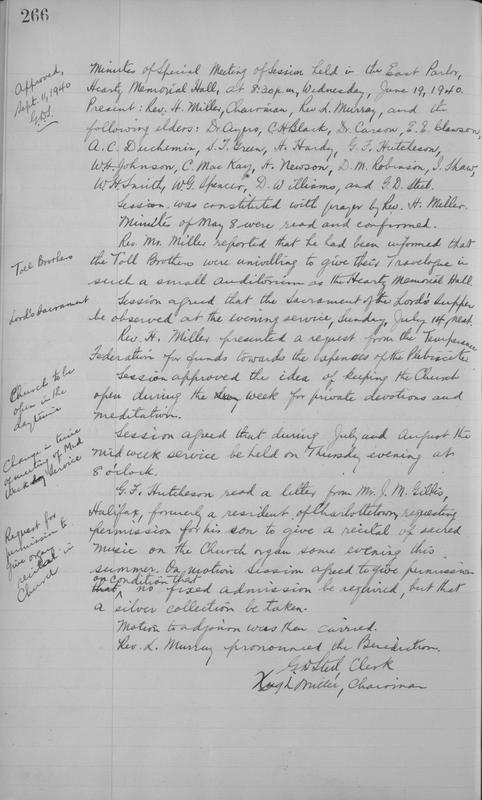 266
Approved,
Sept. 11, 1940
G.D.S.
Minutes of Special Meeting of Session held in the East Parlor,
Heartz Memorial Hall, at 8:30 p.m., Wednesday, June 19, 1940.
Present: Rev. H. Miller, Chairman, Rev L. Murray, and the
following elders: Dr Ayers, C H Black, Dr. Carson, E. E. Clawson,
A. C. Duchemin, S. T. Green, H. Hardy, G. F. Hutcheson,
W H. Johnson, C. MacKay, H. Newson, D. M. Robinson, J. Shaw,
W H Smith, W G. Spencer, D. Williams, and G. D. Steel.
Session was constituted with prayer by Rev. H. Miller.
Minutes of May 8 were read and confirmed.
Toll Brothers
Rev. Mr. Miller reported that he had been informed that
the Toll Brothers were unwilling to give their Travelogue in
such a small auditorium as the Heartz Memorial Hall.
Lord's Sacrament
Session agreed that the Sacrament of the Lord's Supper
be observed at the evening service, Sunday, July 14, next.
Rev. H. Miller presented a request from the Temperance
Federation for funds towards the expenses of the Plebiscite.
Church to be
open in the
daytime
Session approved the idea of keeping the Church
open during the week for private devotions and
meditation.
Change in time
of meeting of Mid
Week Service
Session agreed that during July and August the
midweek service be held on Thursday evening at
8 o'clock.
Request for
permission to
give organ
recital in
Church
G. F. Hutcheson read a letter from Mr. J. M. Gillis,
Halifax, formerly a resident of Charlottetown, requesting
permission for his son to give a recital of sacred
music on the Church organ some evening this
summer. On motion Session agreed to give permission
on condition that
that no fixed admission be required, but that
a silver collection be taken.
Motion to adjourn was then carried.
Rev. L. Murray pronounced the Benediction.
G D Steel Clerk
Hugh Miller, Chairman